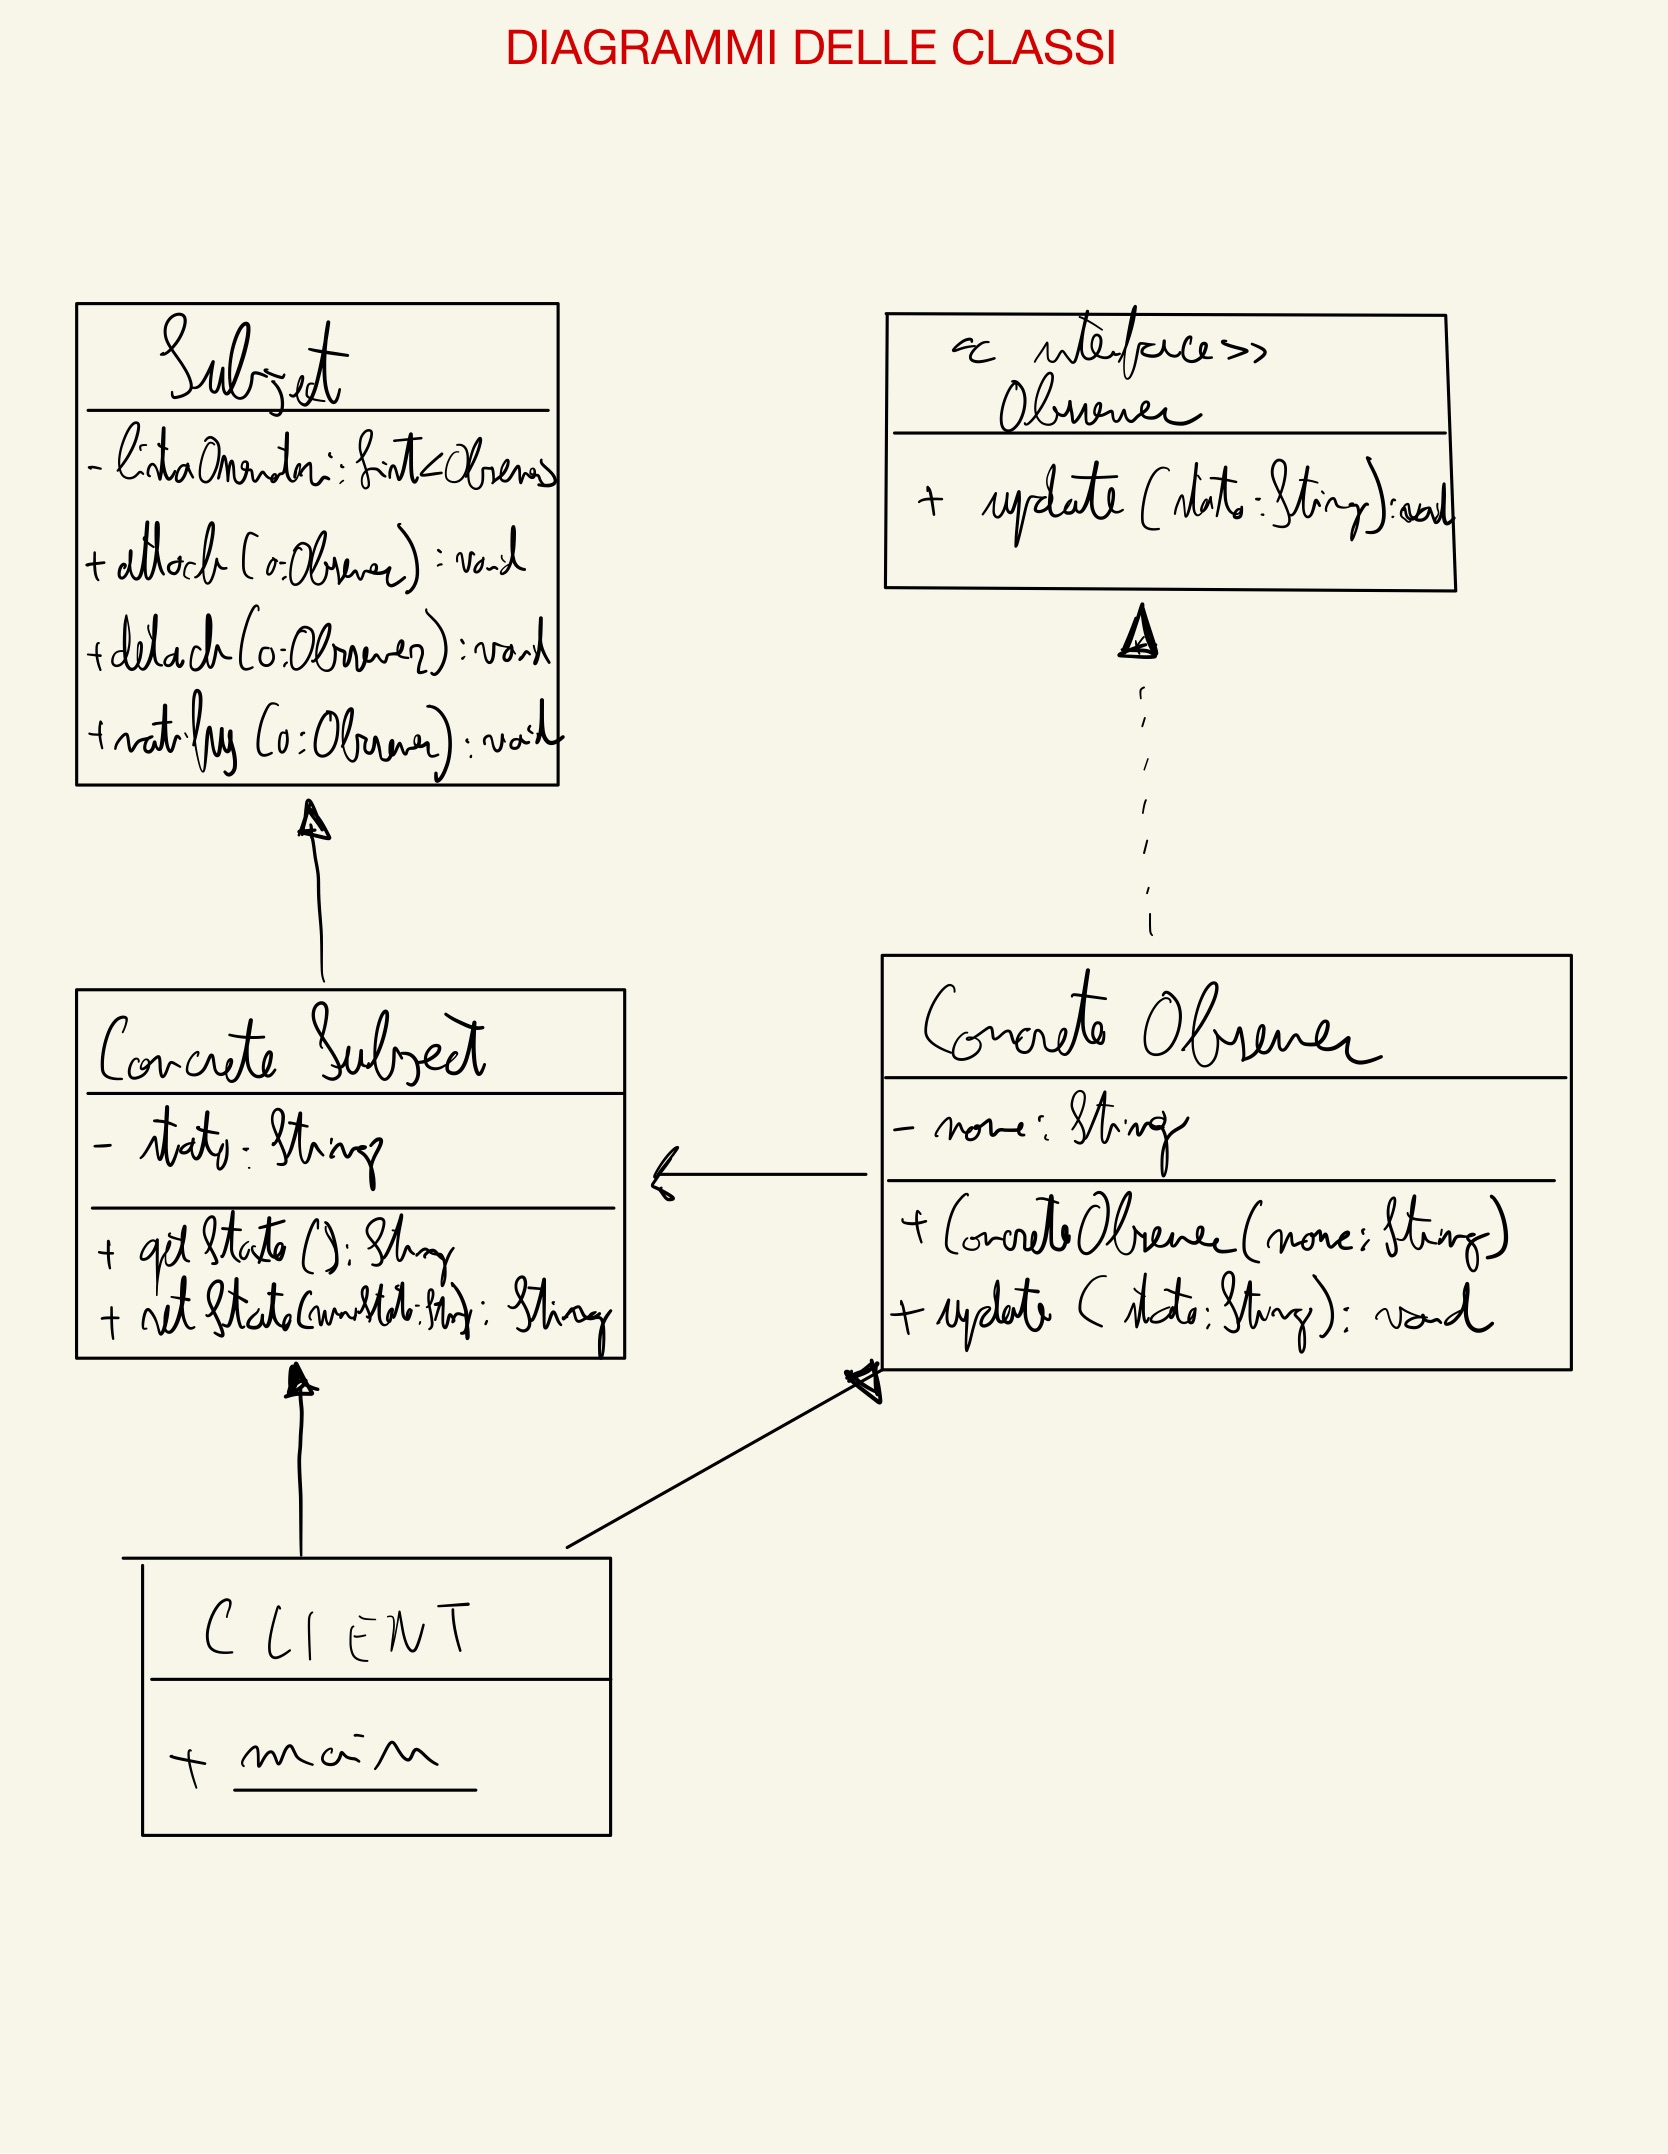 DIAGRAMMI DELLE CLASSI
Subject
- listaOsservatori: List<Observer>
+ attach (o:Observer) : void
+ detach (o:Observer) : void
+ notify (o:Observer) : void
<< interface >>
Observer
+ update (stato: String): void
Concrete Subject
- stato: String
+ getStato (): String
+ setStato (nuovoStato: String): String
Concrete Observer
- nome: String
+ ConcreteObserver (nome: String)
+ update (stato: String): void
CLIENT
+ main